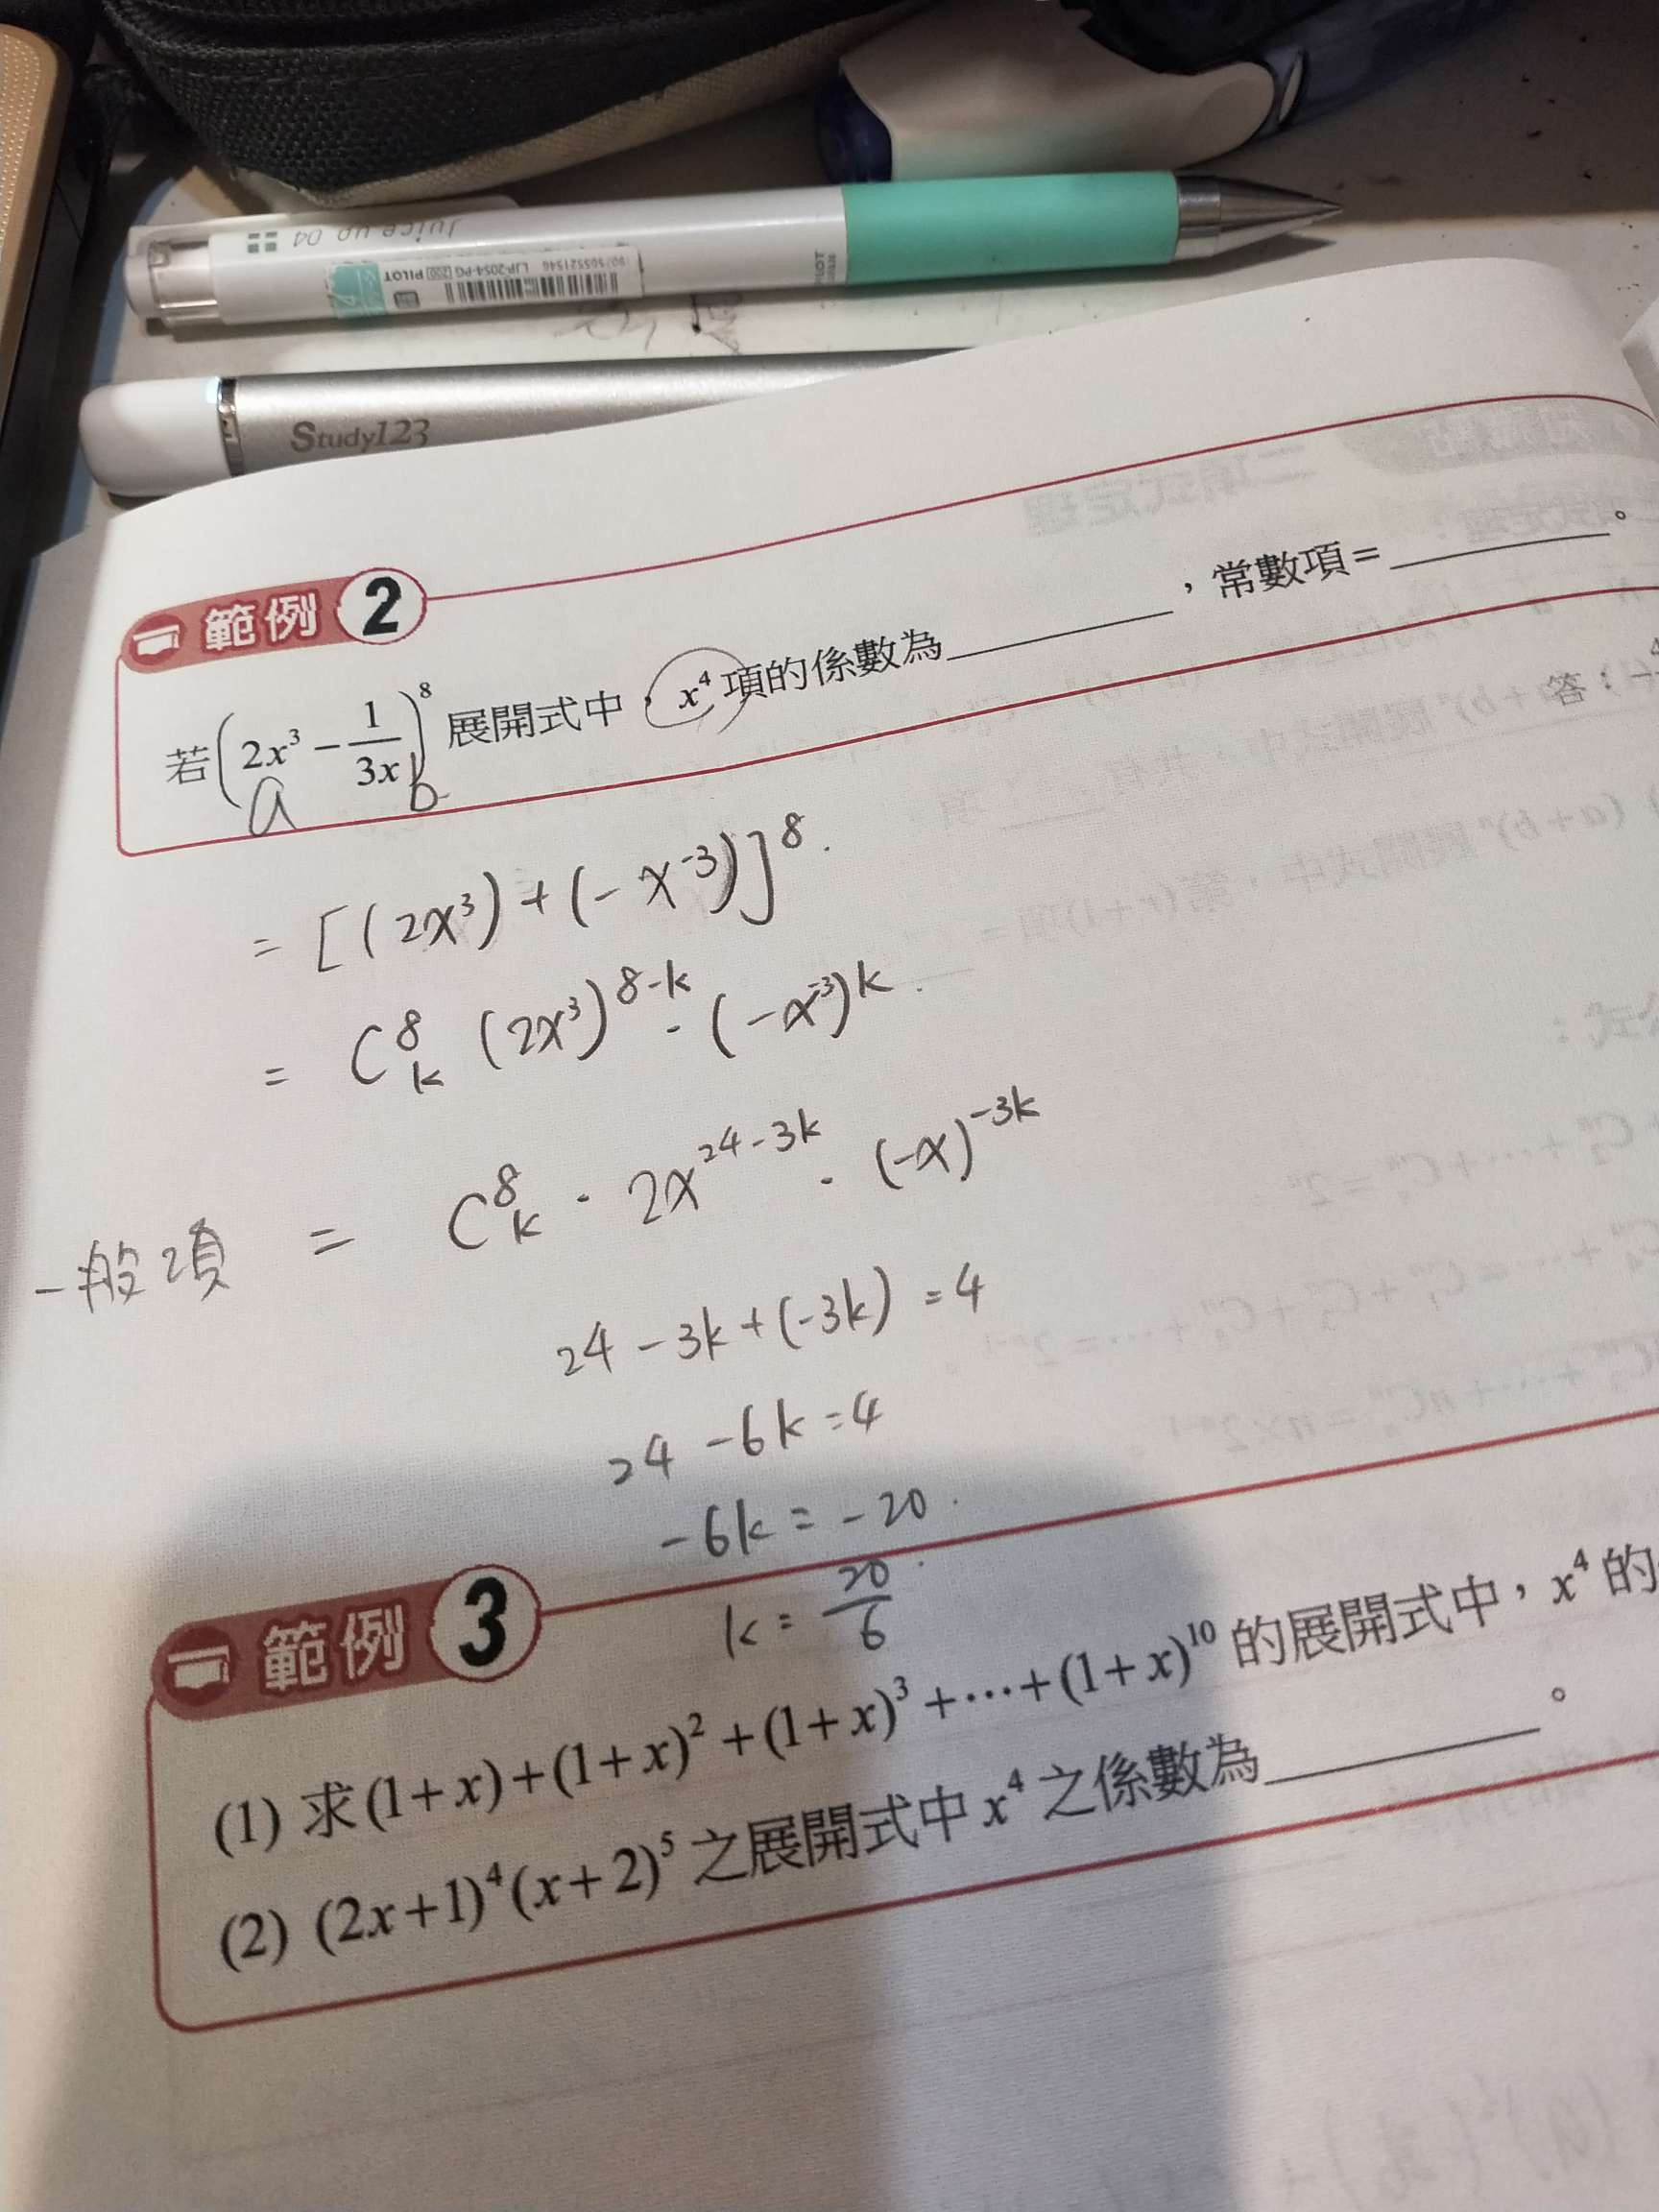 Juice up 04
PILOT LJP-20S4-PG
PILOT
Study123
範例 2
若(2x³ − 1/3x)⁸ 展開式中，x⁴ 項的係數為________，常數項=________。
a b
答：
= [(2x³) + (−x⁻³)]⁸
= C⁸ₖ (2x³)⁸⁻ᵏ · (−x⁻³)ᵏ
一般項 = C⁸ₖ · 2x²⁴⁻³ᵏ · (−x)⁻³ᵏ
24 − 3k + (−3k) = 4
24 − 6k = 4
−6k = −20
k = 20/6
範例 3
(1) 求(1+x)+(1+x)²+(1+x)³+⋯+(1+x)¹⁰ 的展開式中，x⁴ 的
(2) (2x+1)⁴(x+2)⁵ 之展開式中 x⁴ 之係數為________。